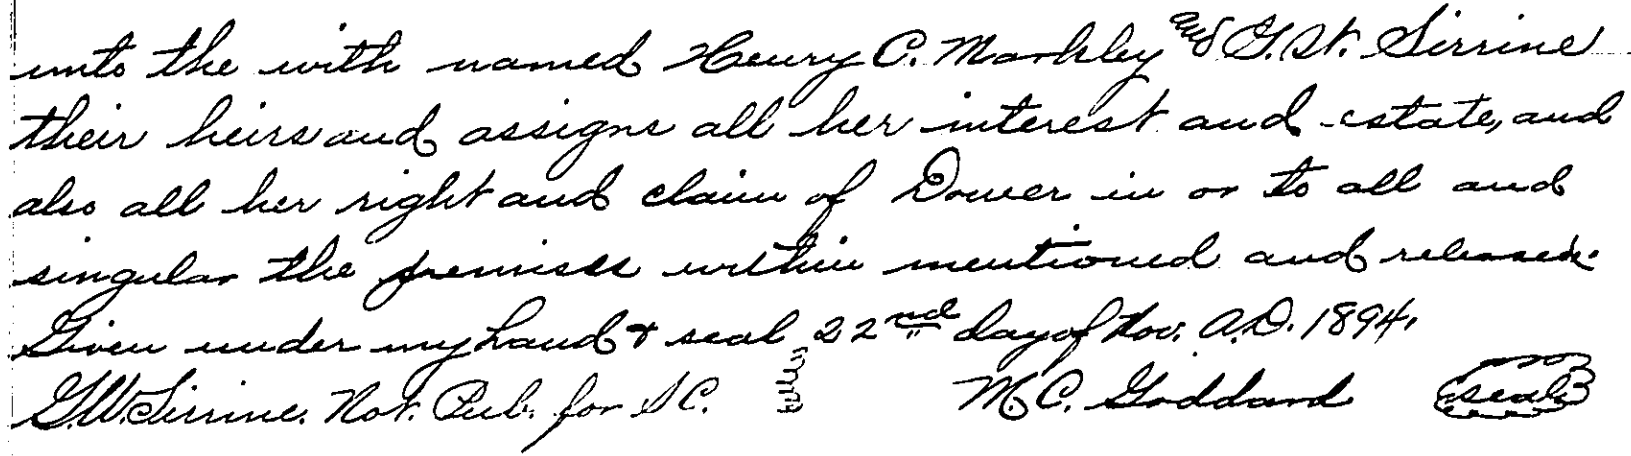 unto the with named Henry C. Markley and G. W. Sirrine
their heirs and assigns all her interest and estate, and
also all her right and claim of Dower in or to all and
singular the premises within mentioned and released.
Given under my hand & seal 22nd day of Nov. A.D. 1894.
G.W. Sirrine. Not. Pub. for S C. M. C. Goddard seal